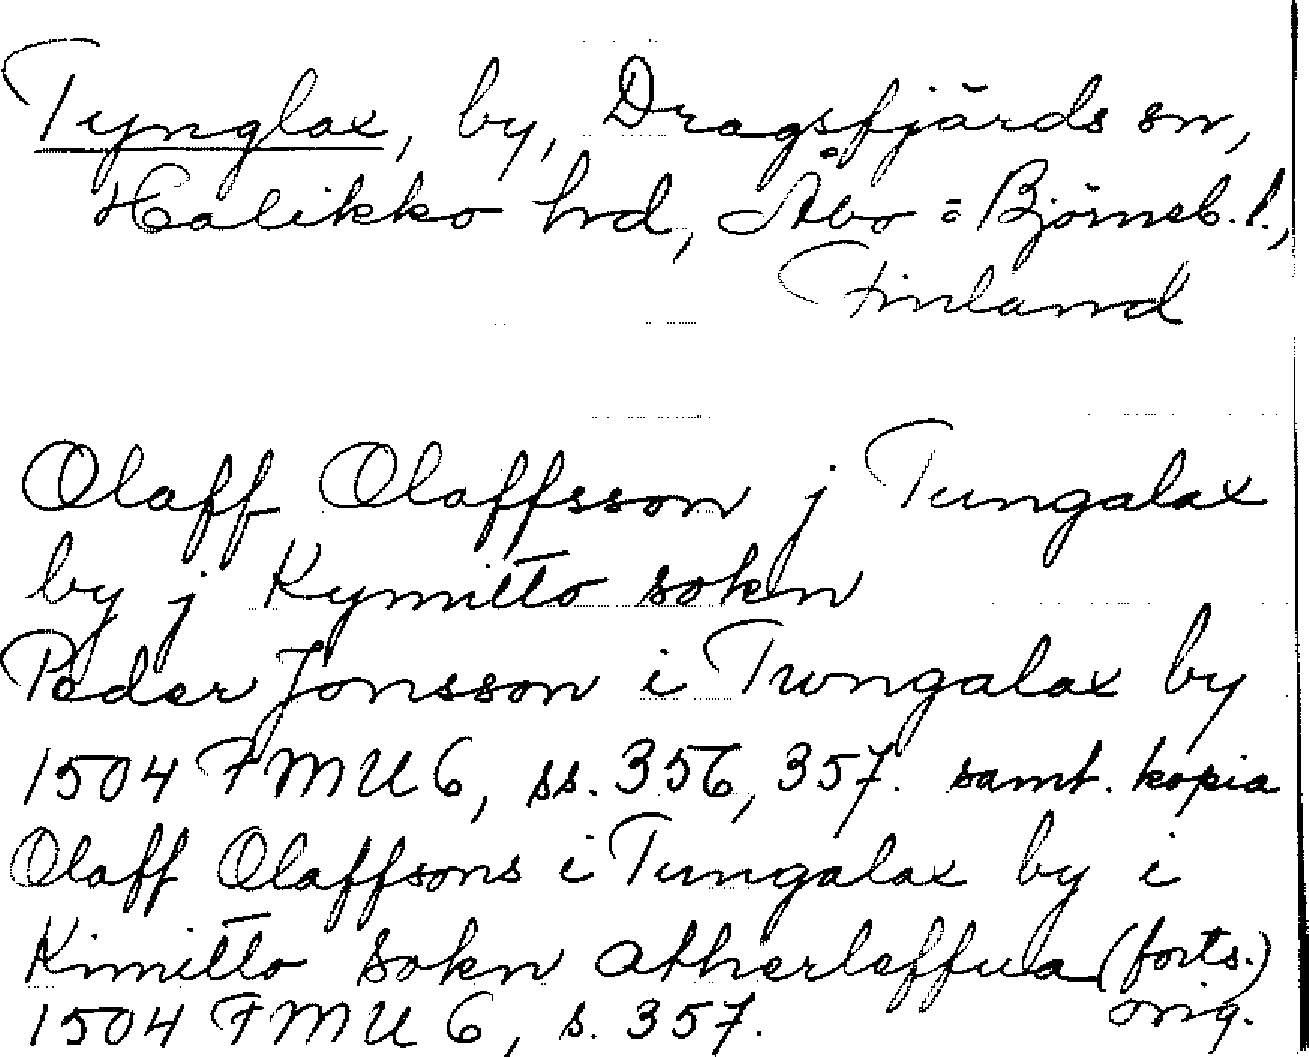 Tynglax, by, Dragsfjärds sn,
Halikko hd, Åbo=Björneb. l.,
Finland
Olaff Olaffsson j Tungalax
by j Kymitto sokn
Peder Jonsson i Twngalax by
1504 FMU 6, ss. 356, 357. samt. kopia
Olaff Olaffsons i Tungalax by i
Kimitto sokn atherleffua (forts.)
1504 FMU 6, s. 357. orig.